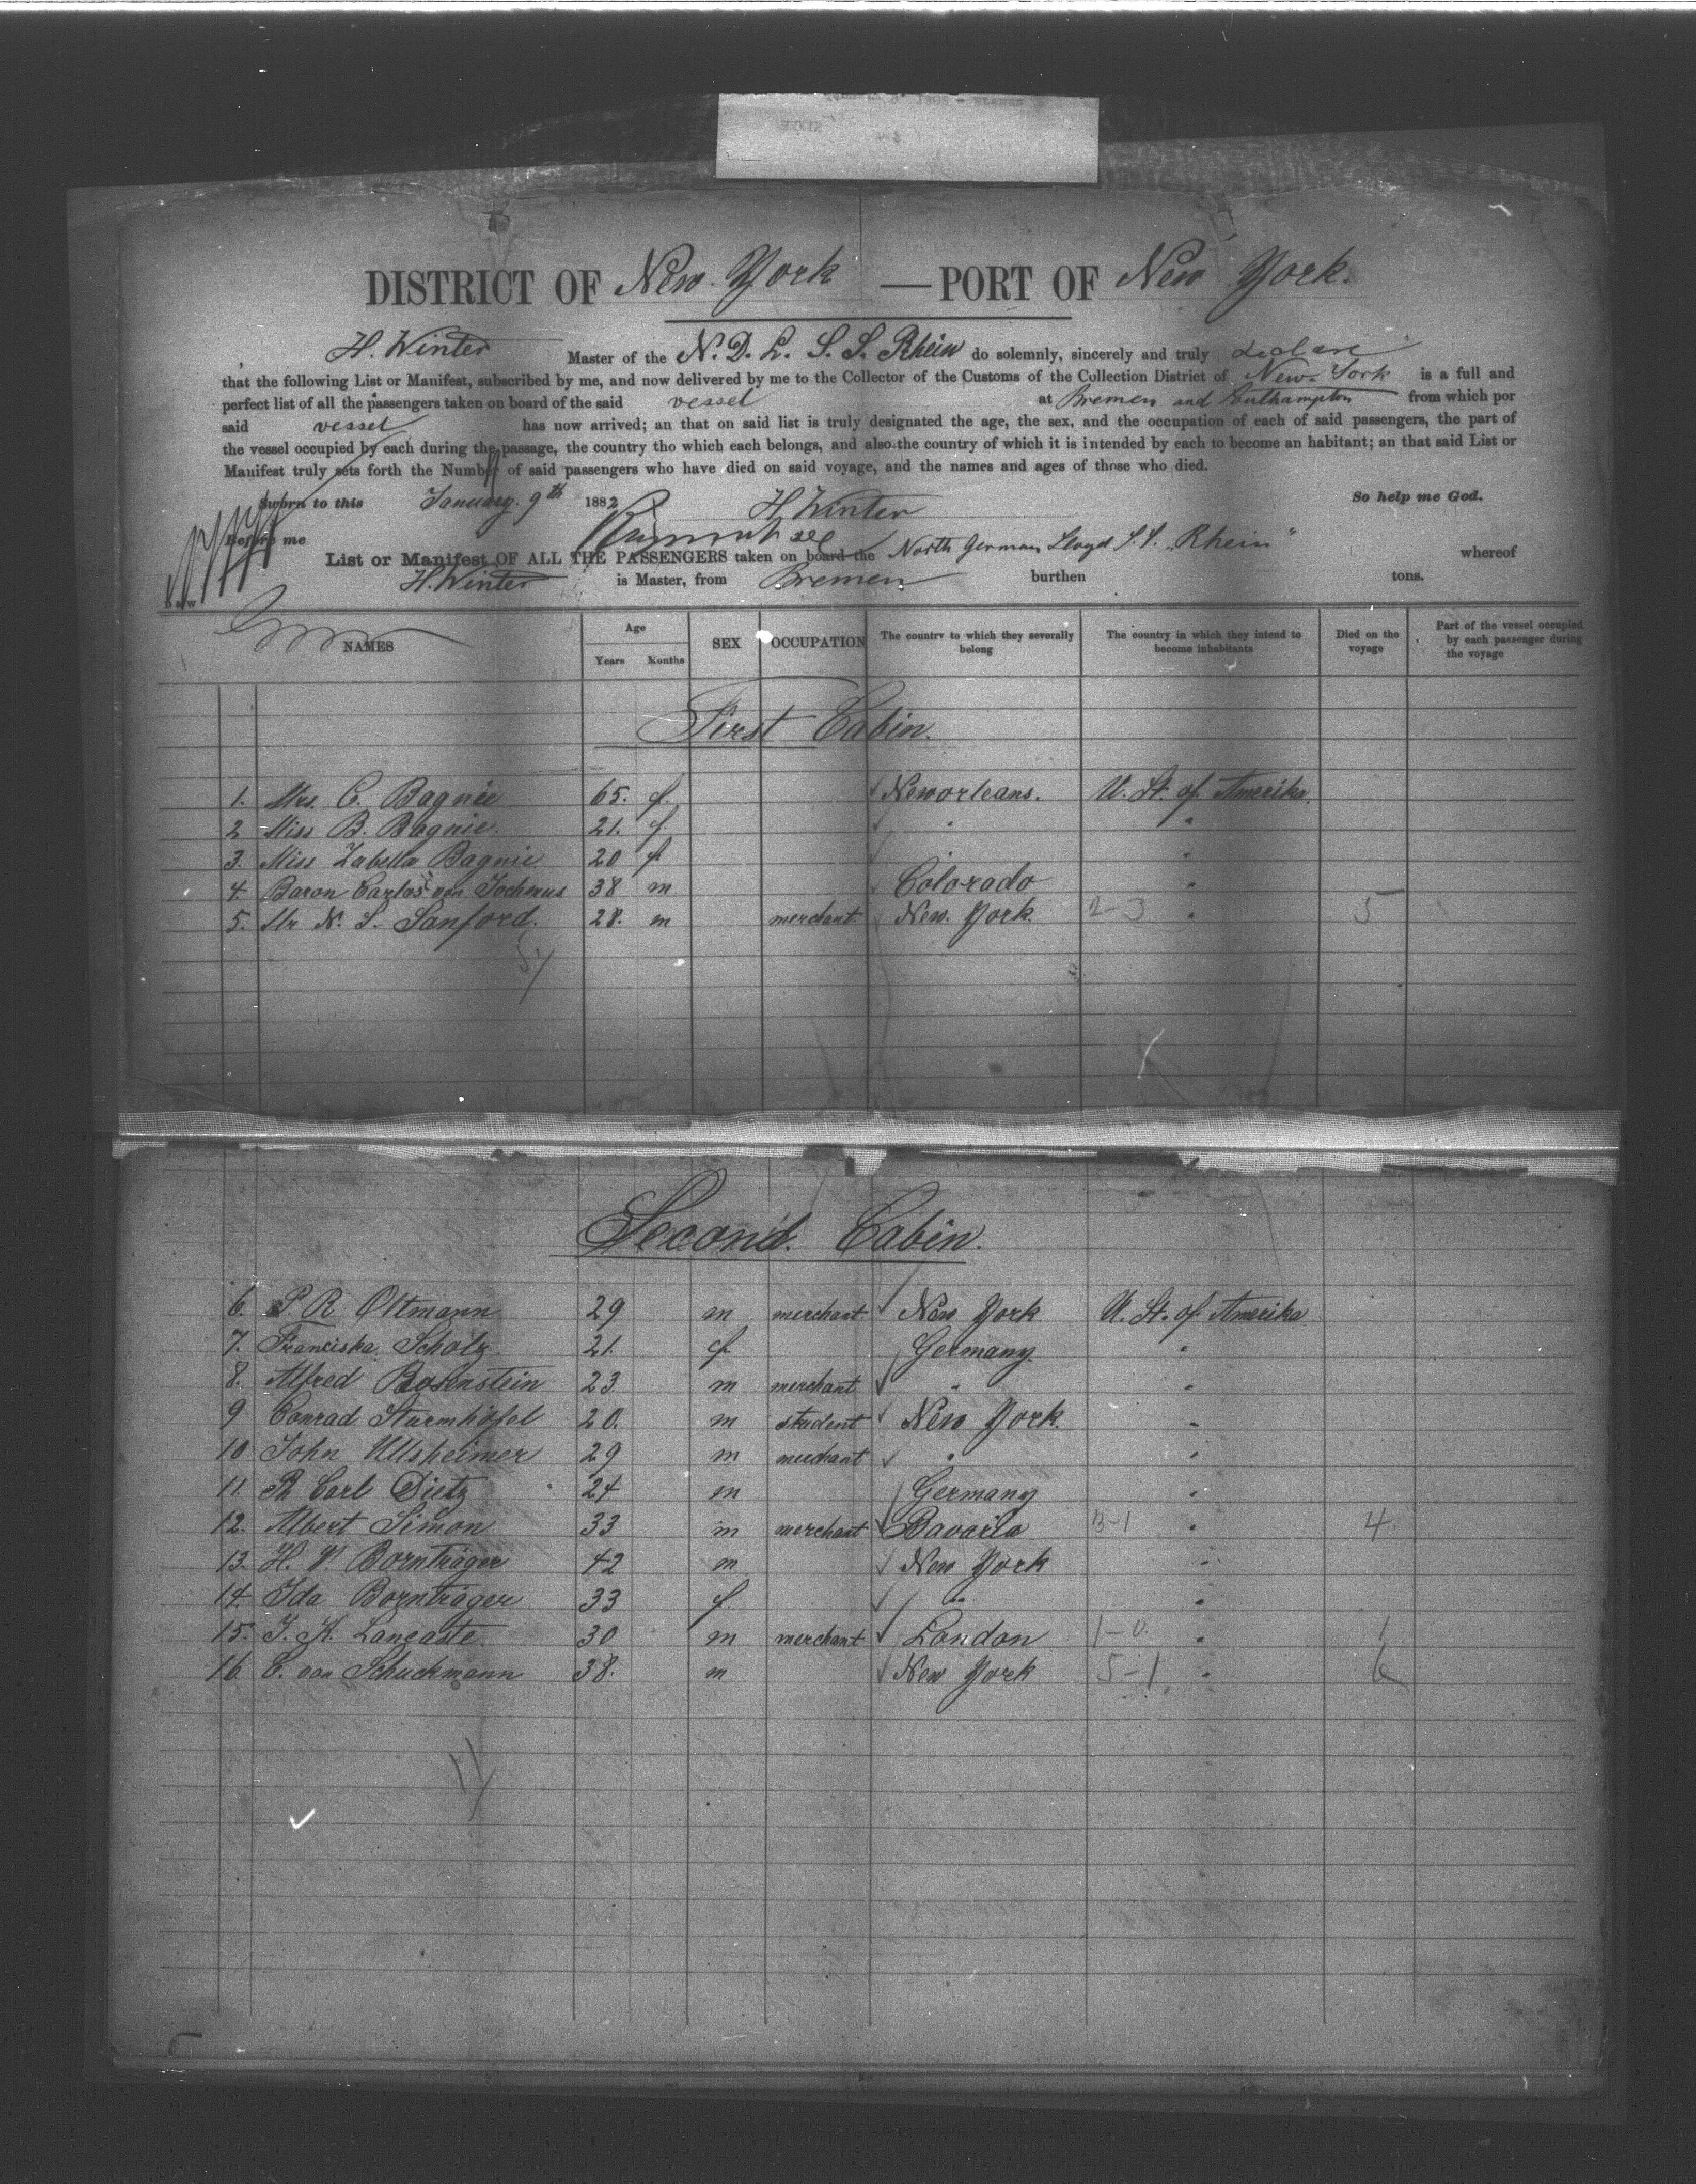 DISTRICT OF New York — PORT OF New York.
H. Winter Master of the N. D. L. S. S. Rhein do solemnly, sincerely and truly declare
that the following List or Manifest, subscribed by me, and now delivered by me to the Collector of the Customs of the Collection District of New-York is a full and
perfect list of all the passengers taken on board of the said vessel at Bremen and Southampton from which por
said vessel has now arrived; an that on said list is truly designated the age, the sex, and the occupation of each of said passengers, the part of
the vessel occupied by each during the passage, the country tho which each belongs, and also the country of which it is intended by each to become an habitant; an that said List or
Manifest truly sets forth the Number of said passengers who have died on said voyage, and the names and ages of those who died.
Sworn to this January 9th 1882 H. Winter So help me God.
Before me
List or Manifest OF ALL THE PASSENGERS taken on board the North German Lloyd S. S. "Rhein" whereof
H. Winter is Master, from Bremen burthen tons.
NAMES Age Years Months SEX OCCUPATION The country to which they severally belong The country in which they intend to become inhabitants Died on the voyage Part of the vessel occupied by each passenger during the voyage
First Cabin.
1. Mrs. C. Bagnie 65. f. Neworleans. U. St. of Amerika.
2 Miss B. Bagnie. 21. f. " "
3. Miss Zabella Bagnie 20 f. " "
4. Baron Carlos von Jochmus 38 m Colorado "
5. Mr N. S. Sanford. 28. m merchant New. York. 2-3 " 5
5/
Second. Cabin.
6. P. R. Oltmann 29 m merchant New York U. St. of Amerika
7. Franciska Scholz 21. f Germany. "
8. Alfred Rosenstein 23 m merchant " "
9 Conrad Sturmhöfel 20. m student New York. "
10 John Ullsheimer 29 m merchant " "
11. Carl Dietz 24 m Germany "
12. Albert Simon 33 m merchant Bavaria 3-1 " 4
13. H. Bornträger 42 m New York "
14 Ida Bornträger 33 f. " "
15. J. H. Lancaste. 30 m merchant London 1-0 " 1
16 C. von Schuckmann 38. m New York 5-1 " 6
11/